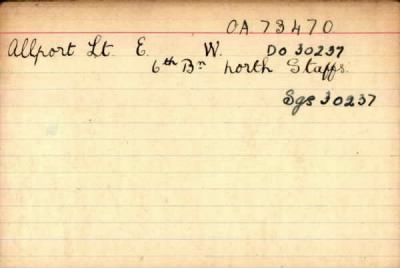 OA 73470
Allport Lt. E. W. Do 30237
6th Bn North Staffs.
Sgs 30237